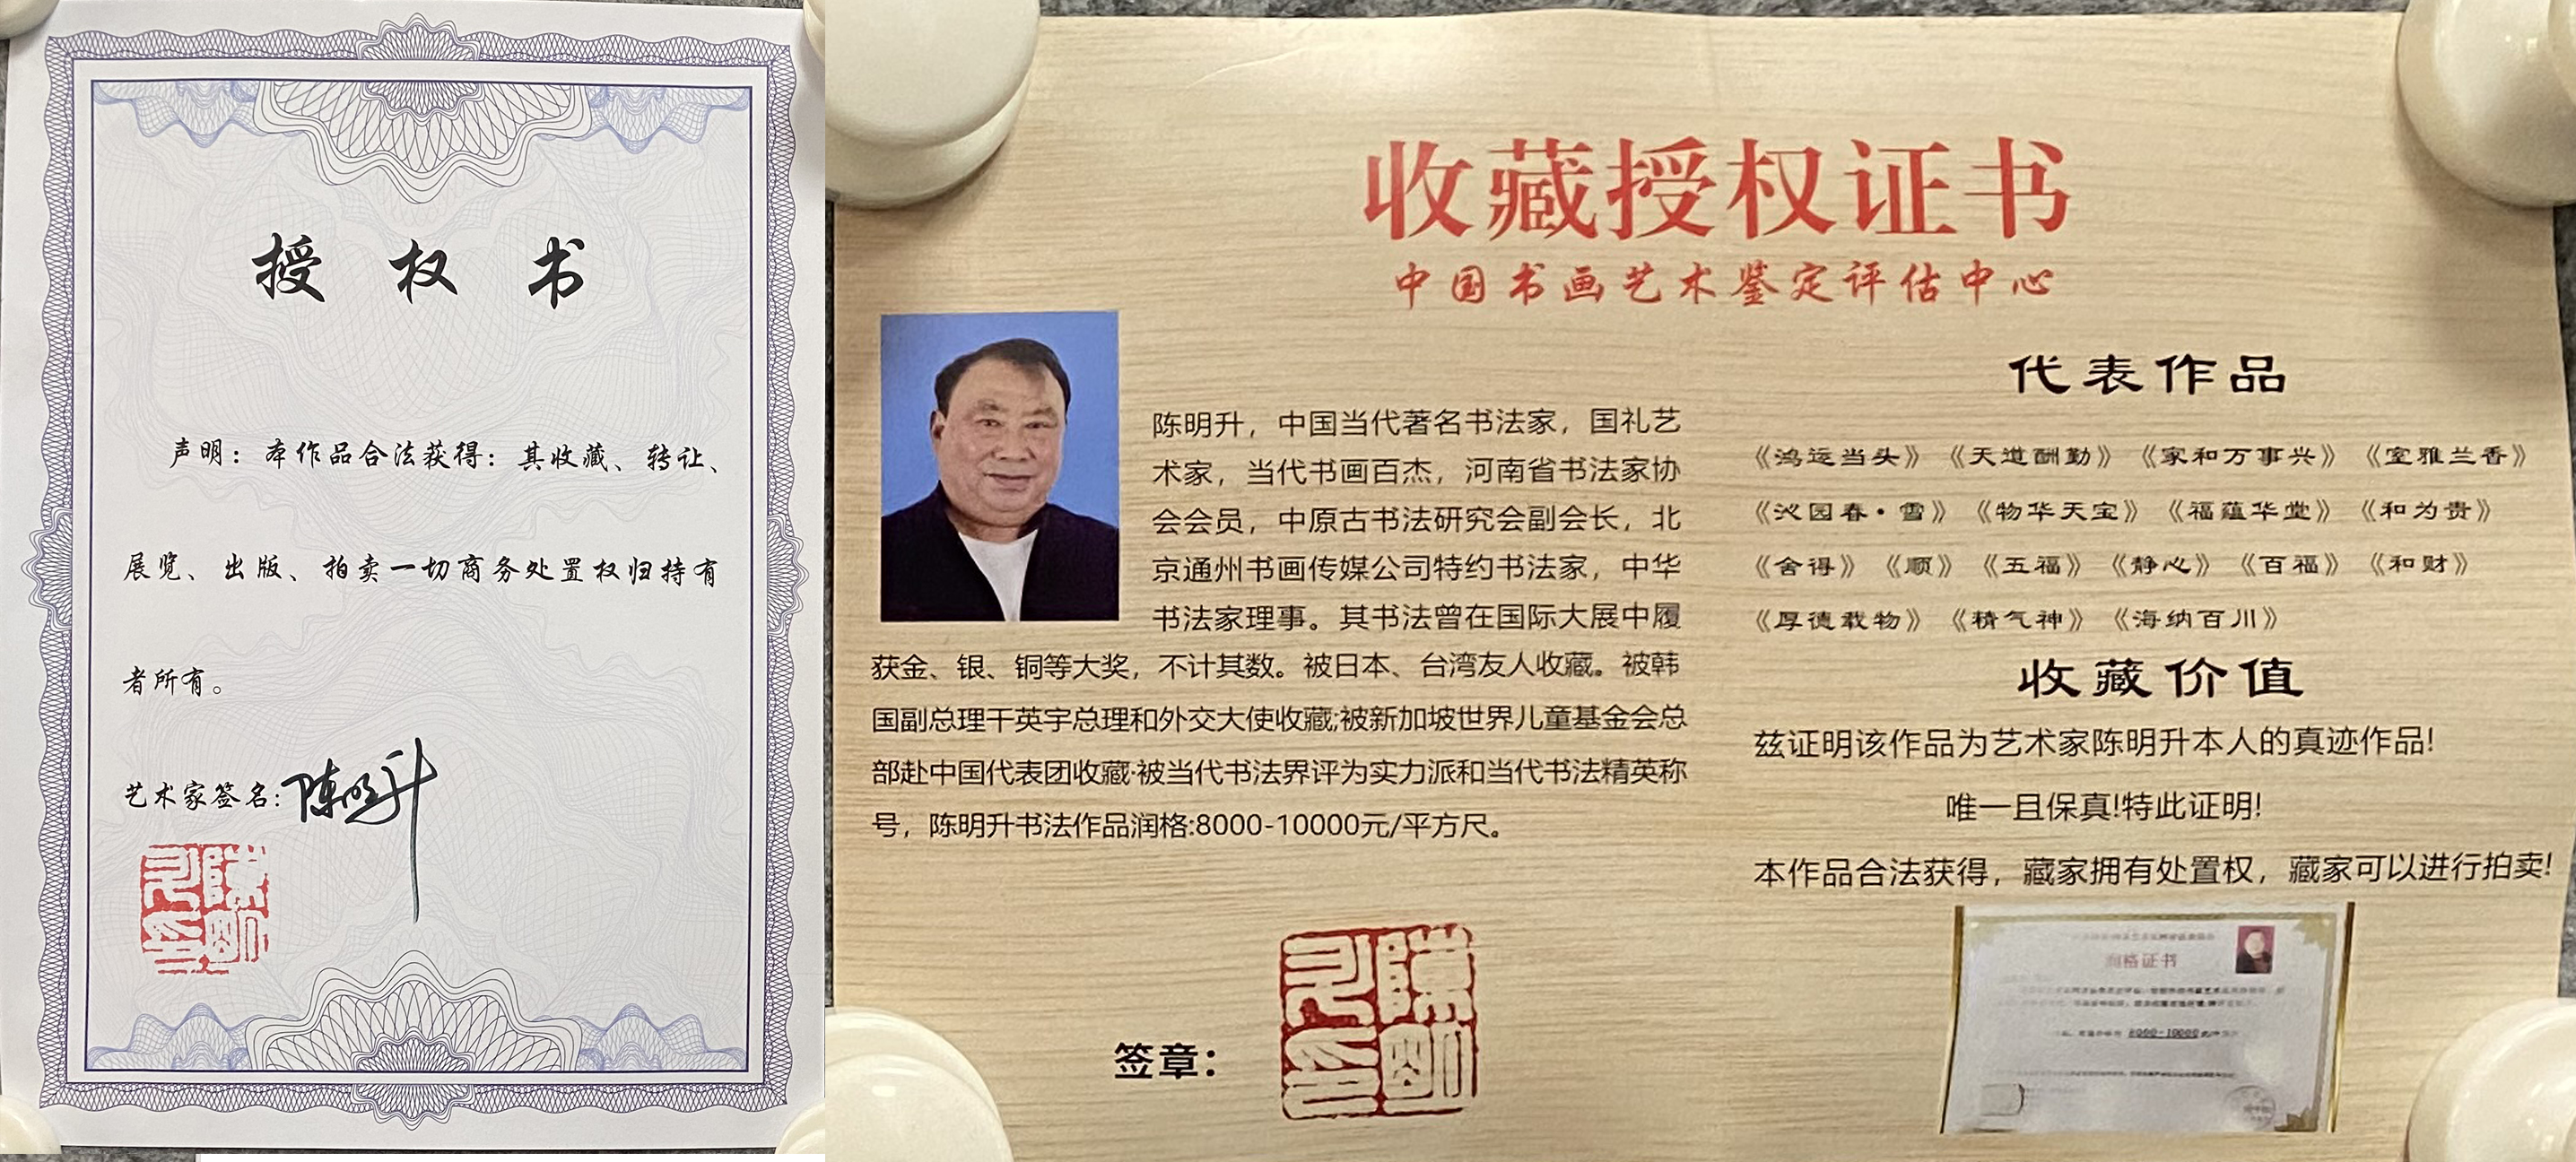 授权书
声明：本作品合法获得：其收藏、转让、
展览、出版、拍卖一切商务处置权归持有
者所有。
艺术家签名:陈明升
收藏授权证书
中国书画艺术鉴定评估中心
陈明升，中国当代著名书法家，国礼艺
术家，当代书画百杰，河南省书法家协
会会员，中原古书法研究会副会长，北
京通州书画传媒公司特约书法家，中华
书法家理事。其书法曾在国际大展中履
获金、银、铜等大奖，不计其数。被日本、台湾友人收藏。被韩
国副总理干英宇总理和外交大使收藏;被新加坡世界儿童基金会总
部赴中国代表团收藏·被当代书法界评为实力派和当代书法精英称
号，陈明升书法作品润格:8000-10000元/平方尺。
签章：
代表作品
《鸿运当头》《天道酬勤》《家和万事兴》《室雅兰香》
《沁园春·雪》《物华天宝》《福蕴华堂》《和为贵》
《舍得》《顺》《五福》《静心》《百福》《和财》
《厚德载物》《精气神》《海纳百川》
收藏价值
兹证明该作品为艺术家陈明升本人的真迹作品!
唯一且保真!特此证明!
本作品合法获得，藏家拥有处置权，藏家可以进行拍卖!
润格证书
8000-10000